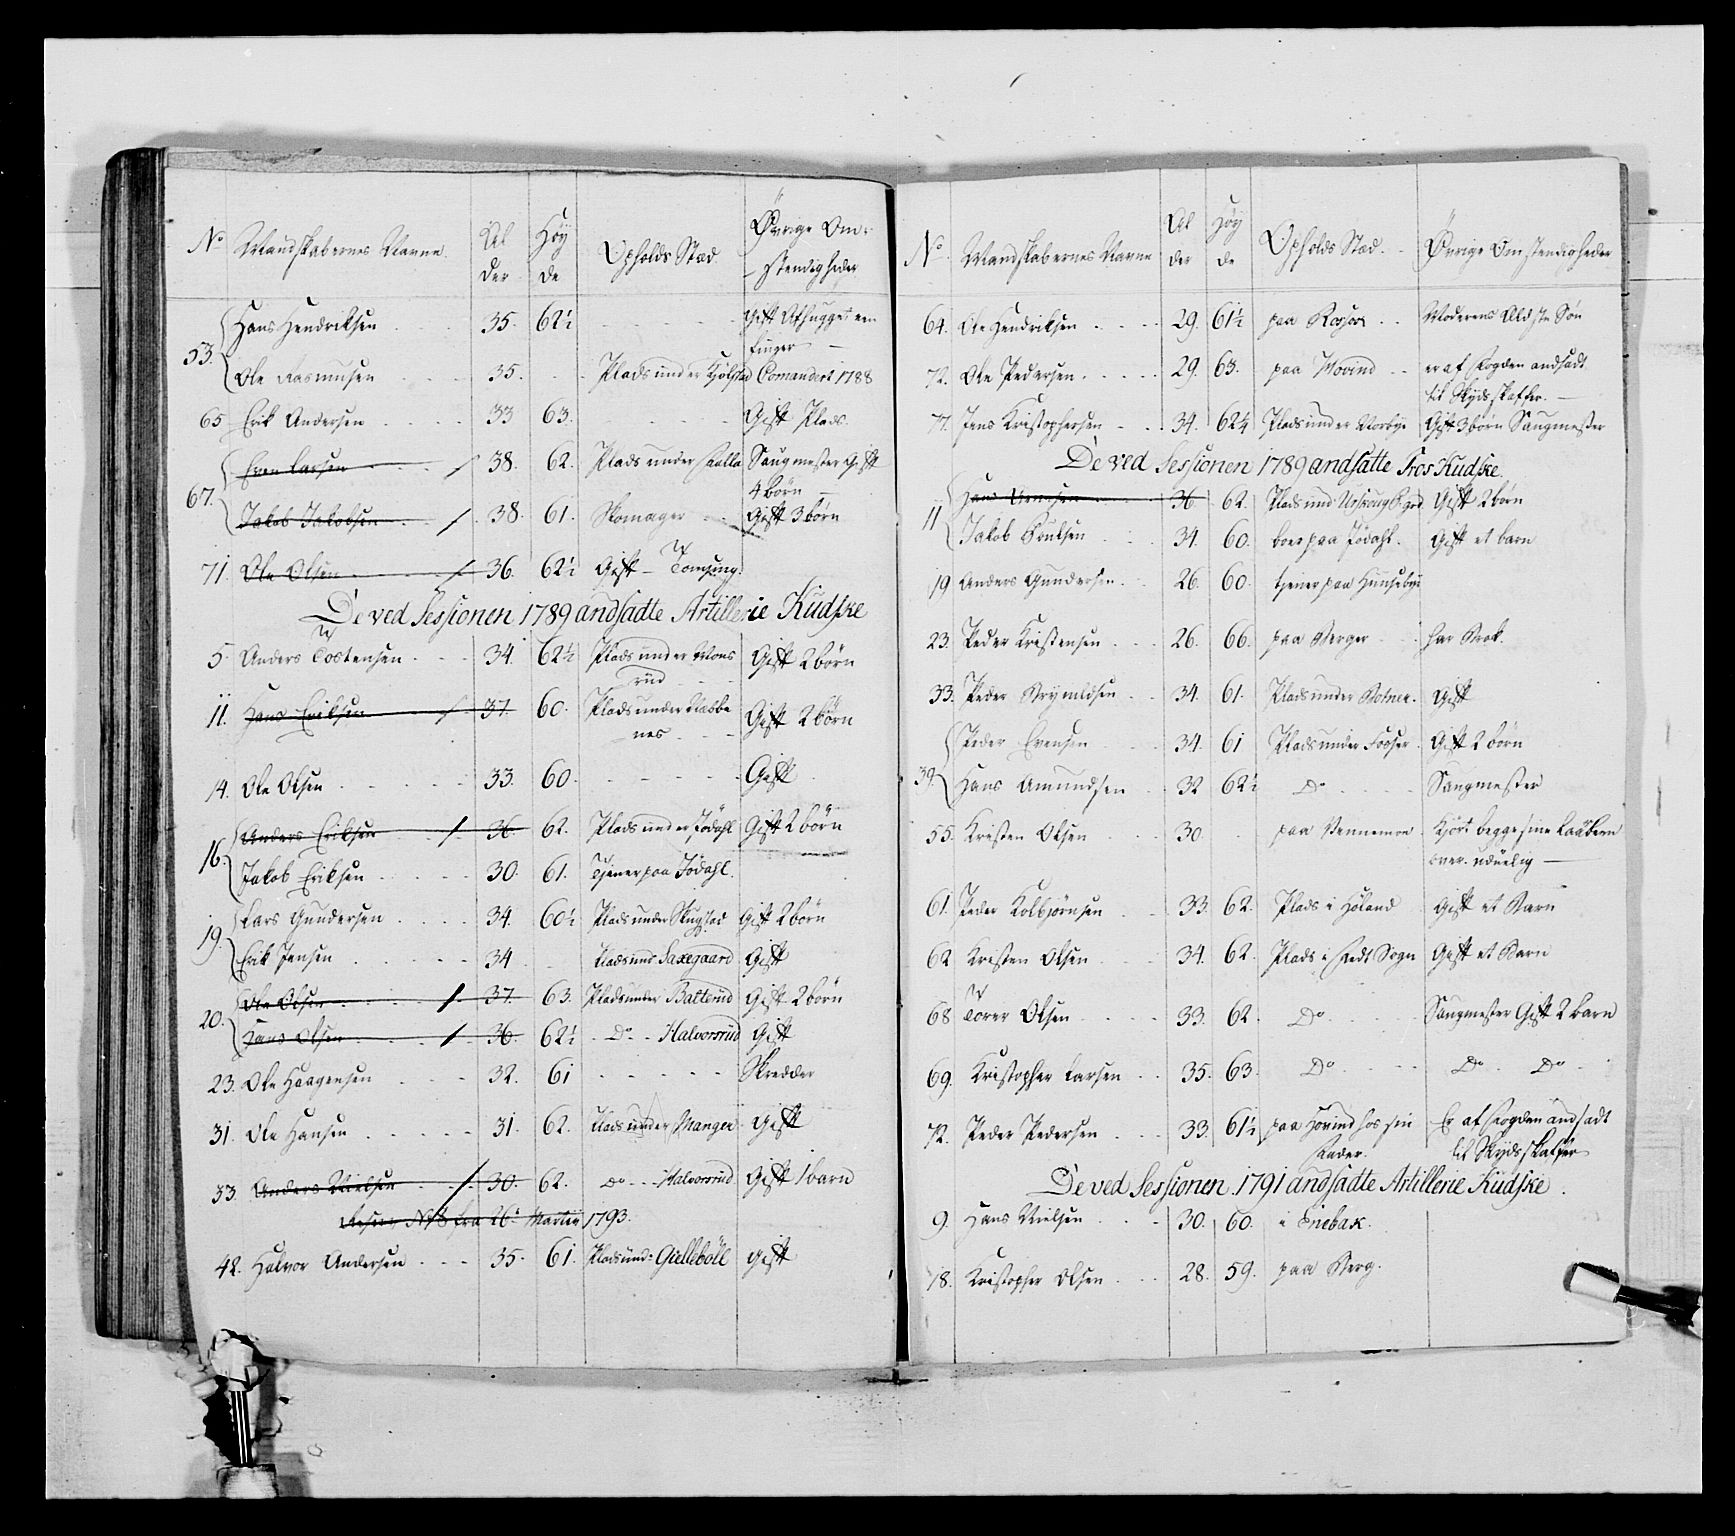 No Mandskabernes Navne Al der Høy de Opholds Stæd Øvrige Om- stendigheder
53. Hans Hendriksen 35. 62½ Gift Afhugget een finger
Ole Rasmusen 35. Plads under Kjølstad Comandert 1788
65 Erik Andersen 33 63. Gift Plads
67. Even Larsen 38. 62. Plads under Saugmester Gift 4 børn
Jakob Jakobsen 38. 61. Skomager Gift 3 børn
71. Ole Olsen 36. 62½ Gift
De ved Sessionen 1789 andsadte Artillerie Kudske
5. Anders Tostensen 34. 62½ Plads under Mons rud Gift 2 børn
11. Hans Eriksen 37. 60. Plads under Nabbe nes Gift 2 børn
14. Ole Olsen 33. 60. Gift
16. Anders Eriksen 36. 62. Plads under Jødahl Gift 2 børn
Jakob Eriksen 30. 61. Tjener paa Jødahl.
19. Lars Gundersen 34. 60½ Plads under Skugstad Gift 2 børn
Erik Jensen 34 Plads und Saxegaard Gift
20. Ole Olsen 37. 63. Plads under Batterud Gift 2 børn
Hans Olsen 36. 62½ Do Halvorsrud Gift
23. Ole Haagensen 32. 61 Skredder
31. Ole Hansen 31. 62. Plads under Manger Gift
33 Anders Nielsen 30. 62. do Halvorsrud Gift 1 barn
No 8 fra 26. Martii 1793.
42. Halvor Andersen 35. 61. Plads und: Gielleböll Gift
No Mandskabernes Navne Al der Høy de Opholds Stæd. Øvrige Omstendigheder
64. Ole Hendriksen 29. 61½ paa Moderens Eldste Søn
72. Ole Pedersen 29. 63. paa Hovind er af Fogden andsadt til Skydsskaffer.
77. Jens Kristophersen 34. 62¼ Plads under Norbye Gift 3 børn Saugmester
De ved Sessionen 1789 andsatte Tros Kudske
11 Hans 36. 62. Plads und Gift 2 børn
Jakob Knutsen 34. 60. boer paa Jødahl. Gift et barn
19 Anders Gundersen 26. 60. tjener paa Hunsebye
23. Peder Kristensen 26. 66. paa Berger har Brok.
33. Peder Brynildsen 34. 61. Plads under Botner. Gift
39. Peder Evensen 34. 61 Plads under Fosser Gift 2 børn
Hans Amundsen 32 62½ Do Saugmester
55. Kristen Olsen 30. paa Vennemoe Kjört begge sine Laarbeen over. uduelig
61. Peder Kolbjørnsen 33. 62. Plads i Høland Gift et Barn
62 Kristen Olsen 34. 62. Plads i Fedt Sogn Gift et Barn
68 Torer Olsen 33. 62. Do Saugmester Gift 2 barn
69. Kristopher Larsen 35. 63. Do Do Do
72. Peder Pedersen 33. 61½ paa Hovind hos sin Fader. Er af Fogden andsadt til Skydsskaffer
De ved Sessionen 1791 andsadte Artillerie Kudske.
9. Hans Nielsen 30. 60. i Enebak.
18. Kristopher Olsen 28. 59. paa Berg.